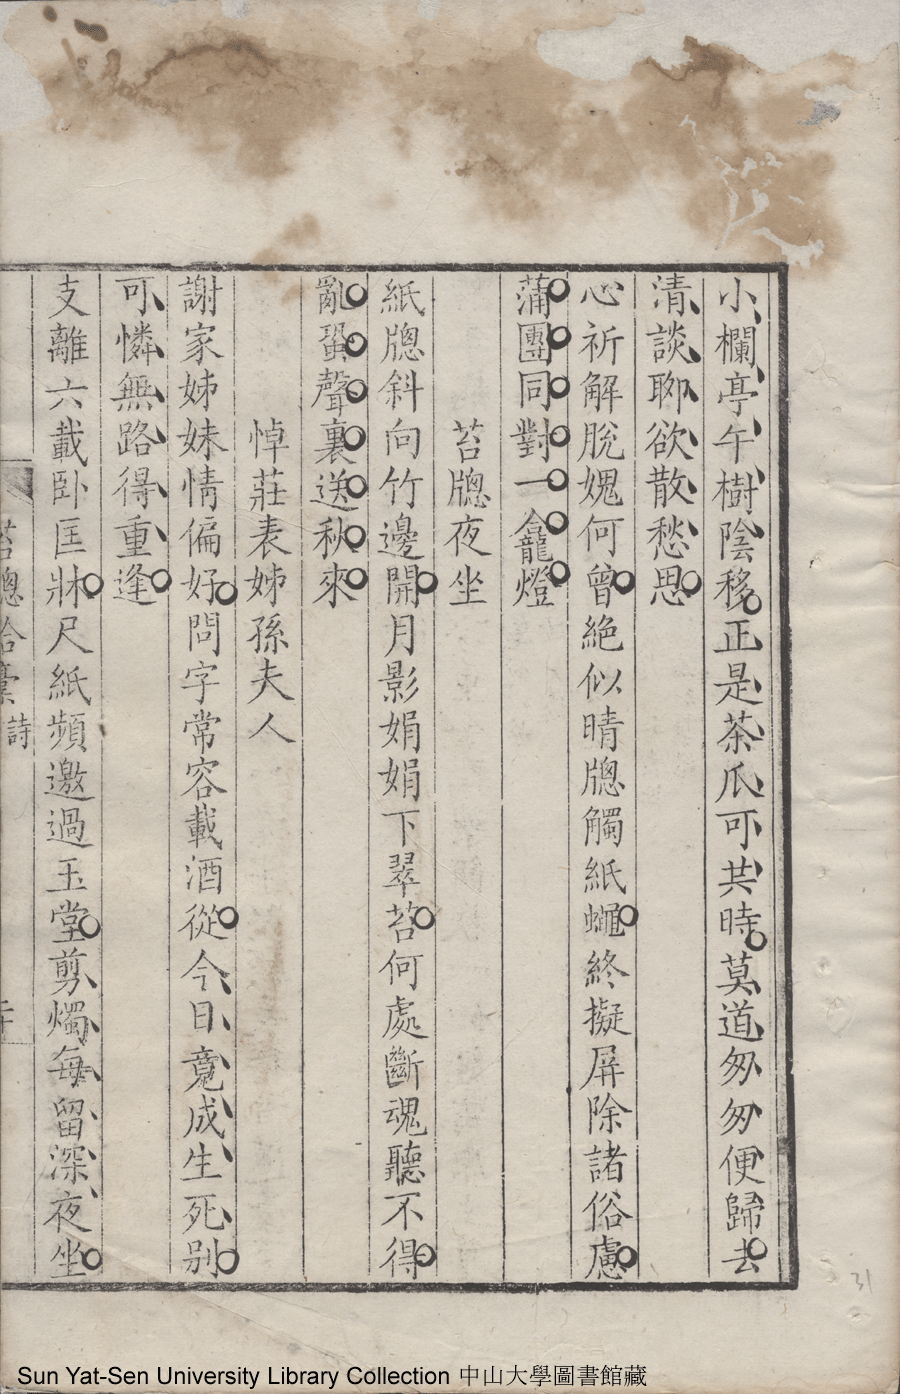 小欄亭午樹陰移正是茶瓜可共時莫道匆匆便歸去
清談聊欲散愁思
心祈解脫媿何曾絕似晴牕觸紙蠅終擬屏除諸俗慮
蒲團同對一龕燈
苔牕夜坐
紙牕斜向竹邊開月影娟娟下翠苔何處斷魂聽不得
亂蛩聲裏送秋來
悼莊表姊孫夫人
謝家姊妹情偏好問字常容載酒從今日竟成生死別
可憐無路得重逢
支離六載臥匡牀尺紙頻邀過玉堂剪燭每留深夜坐
苔牕拾稾 詩
31
Sun Yat-Sen University Library Collection 中山大學圖書館藏